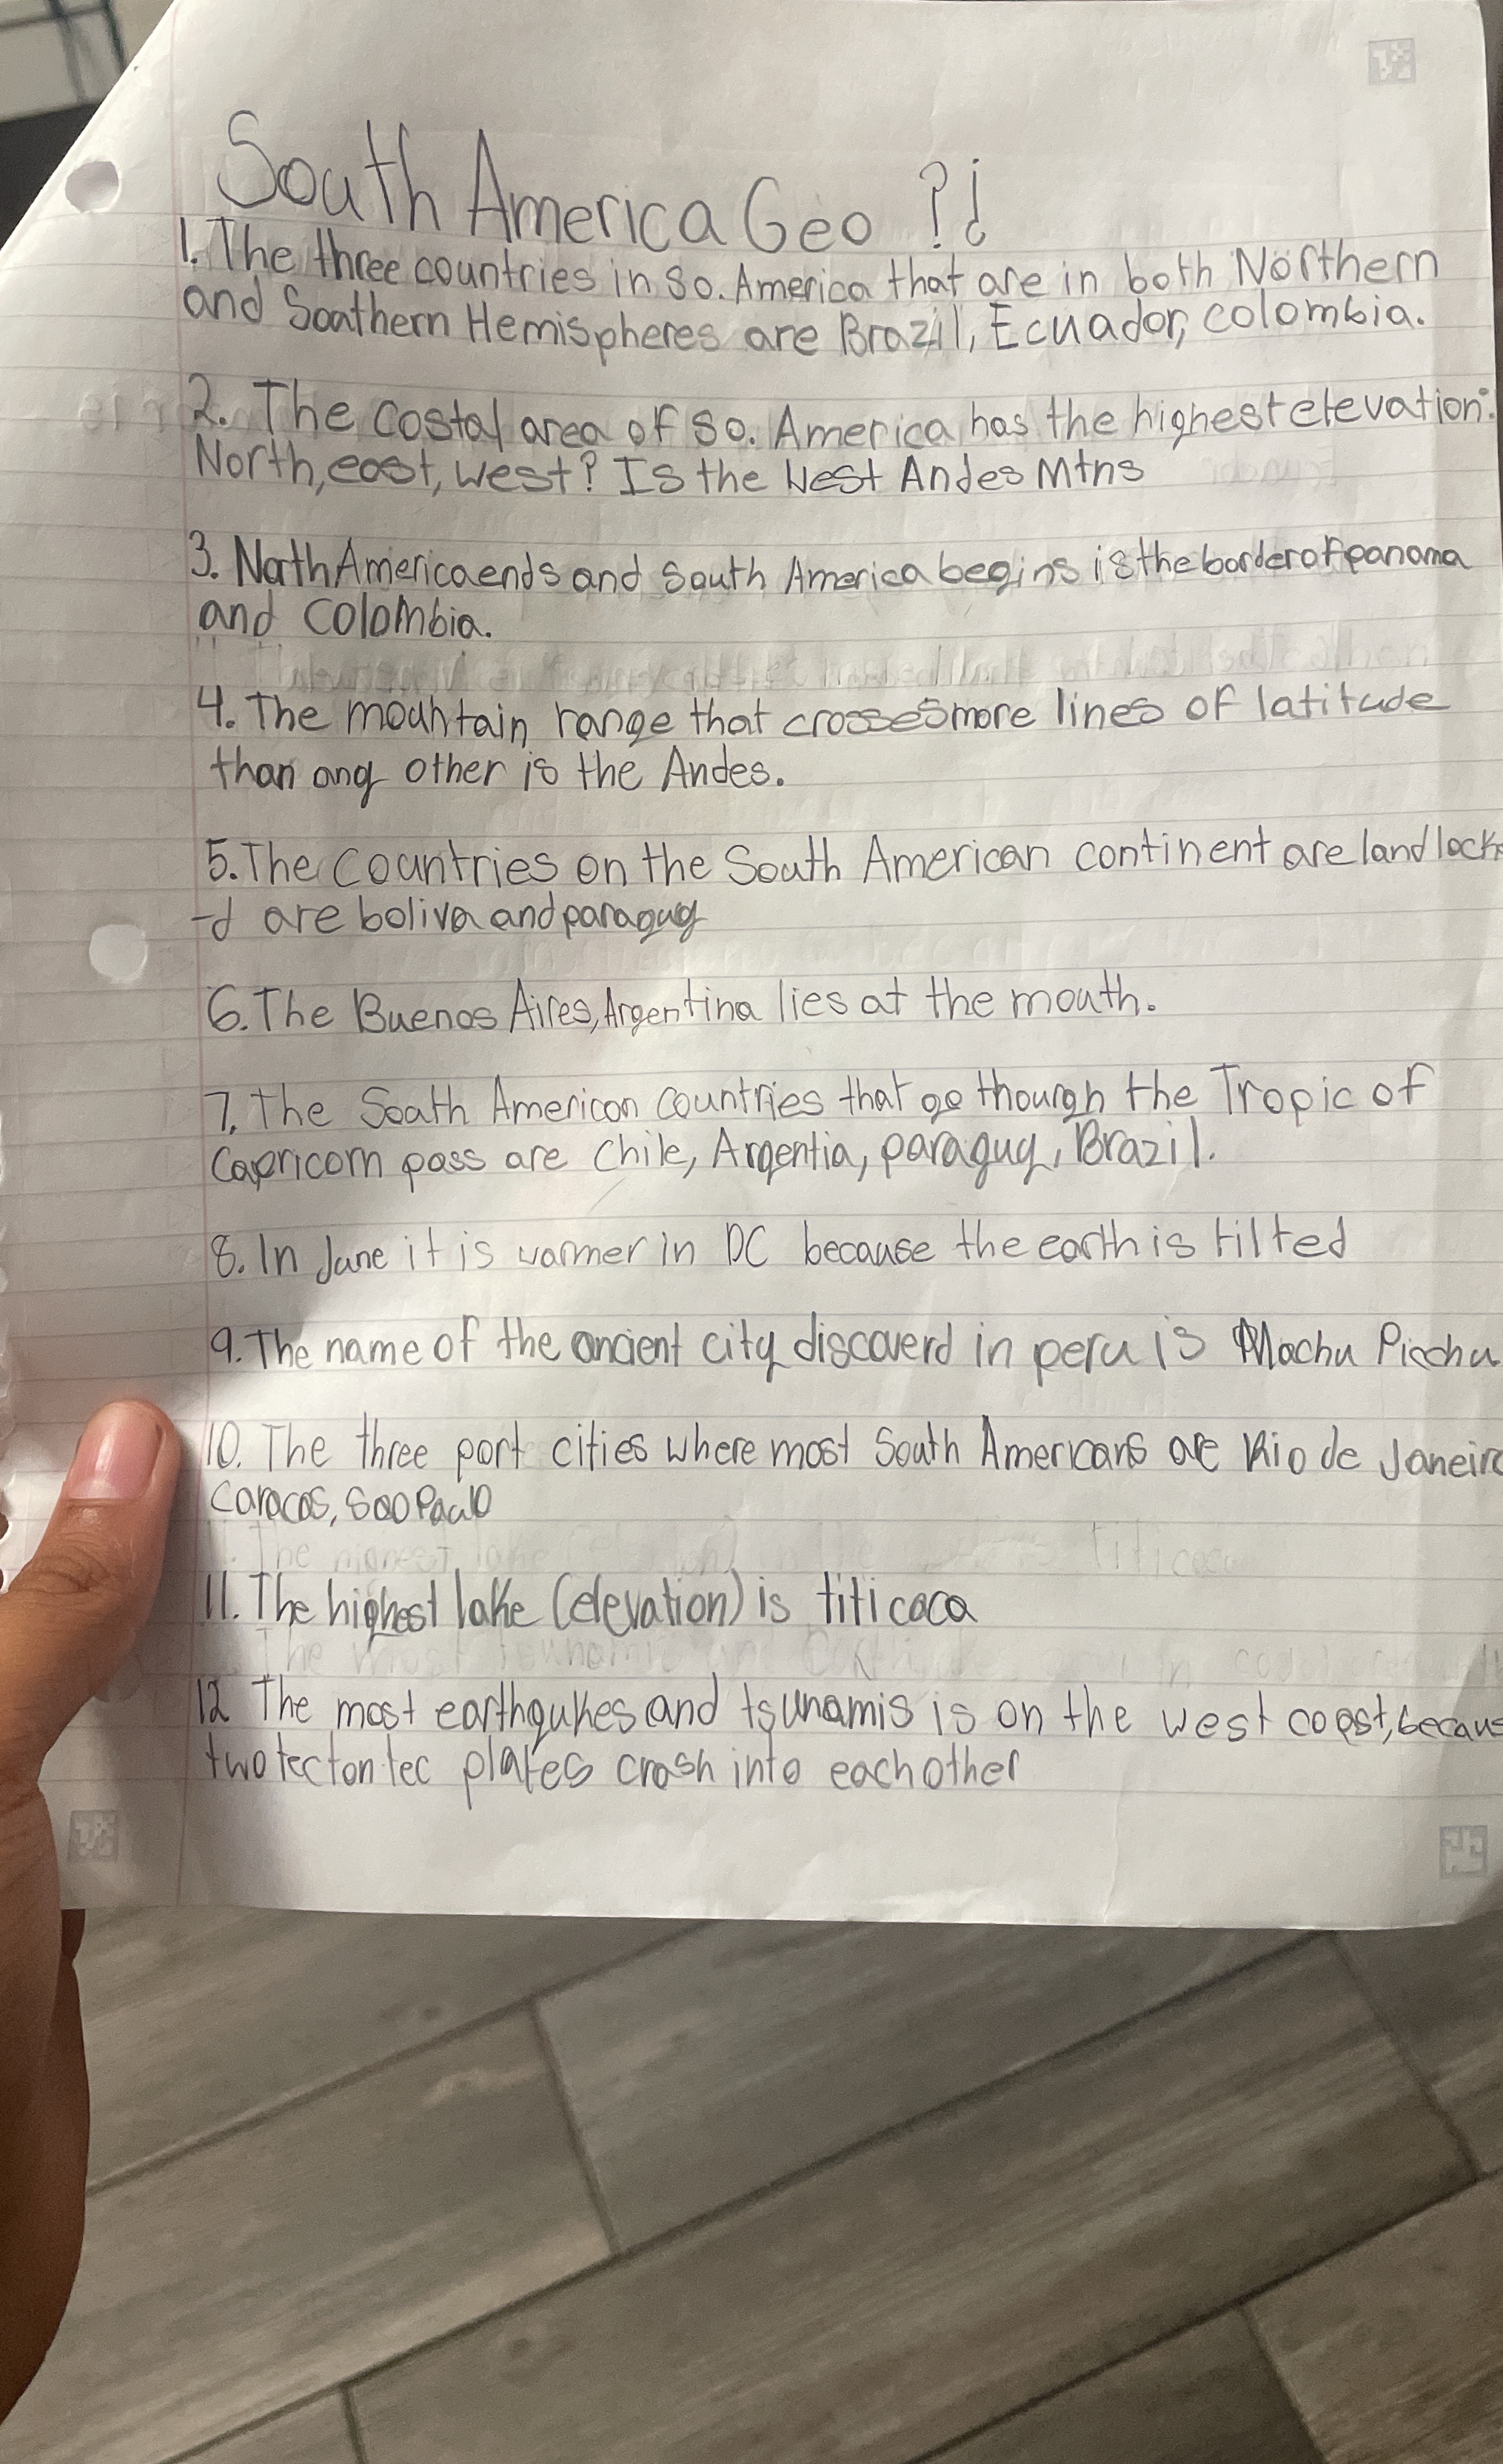 South America Geo ?¿
1. The three countries in So. America that are in both Northern
and Southern Hemispheres are Brazil, Ecuador, colombia.
2. The costal area of So. America has the highest elevation:
North, east, west? Is the West Andes Mtns
3. North America ends and South America begins is the border of panama
and Colombia.
4. The mountain range that crosses more lines of latitude
than any other is the Andes.
5. The Countries on the South American continent are land lock
-d are boliva and paraguy
6. The Buenos Aires, Argentina lies at the mouth.
7. The South American countries that go thourgh the Tropic of
Capricorn pass are Chile, Argentia, paraguy, Brazil.
8. In June it is warmer in DC because the earth is tilted
9. The name of the ancient city discoverd in peru is Machu Picchu
10. The three port cities where most South Americans are Rio de Janeiro
Caracas, Sao Paulo
11. The highest lake (elevation) is titicaca
12 The most earthqukes and tsunamis is on the west coast, becaus
two tectontec plates crash into each other